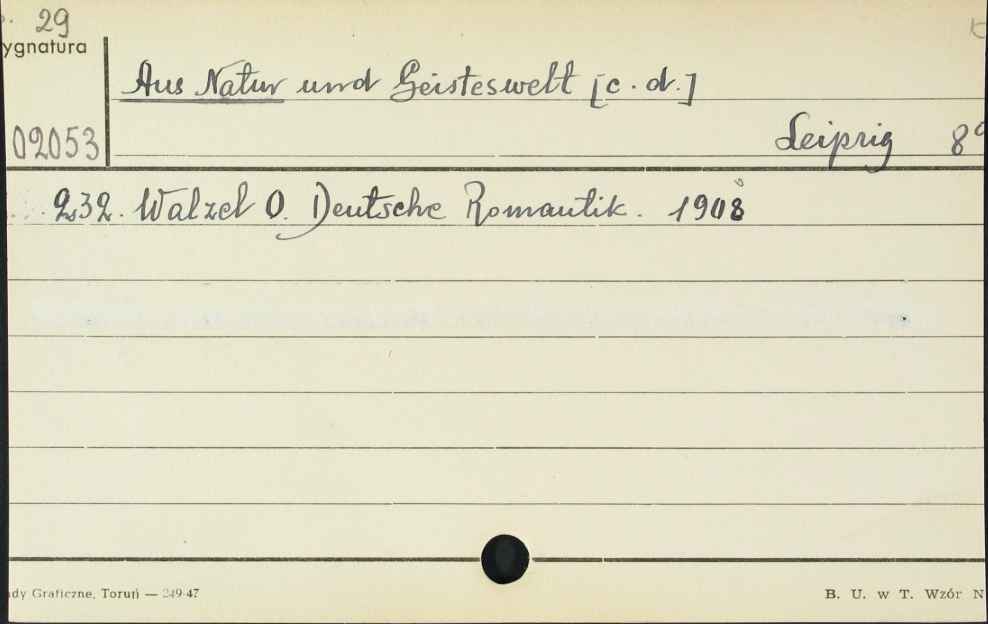 29
ygnatura
Aus Natur und Geisteswelt [c. d.]
02053
Leipzig 8°
232. Walzel O. Deutsche Romantik. 1908
dy Graficzne, Toruń — 249-47
B. U. w T. Wzór N